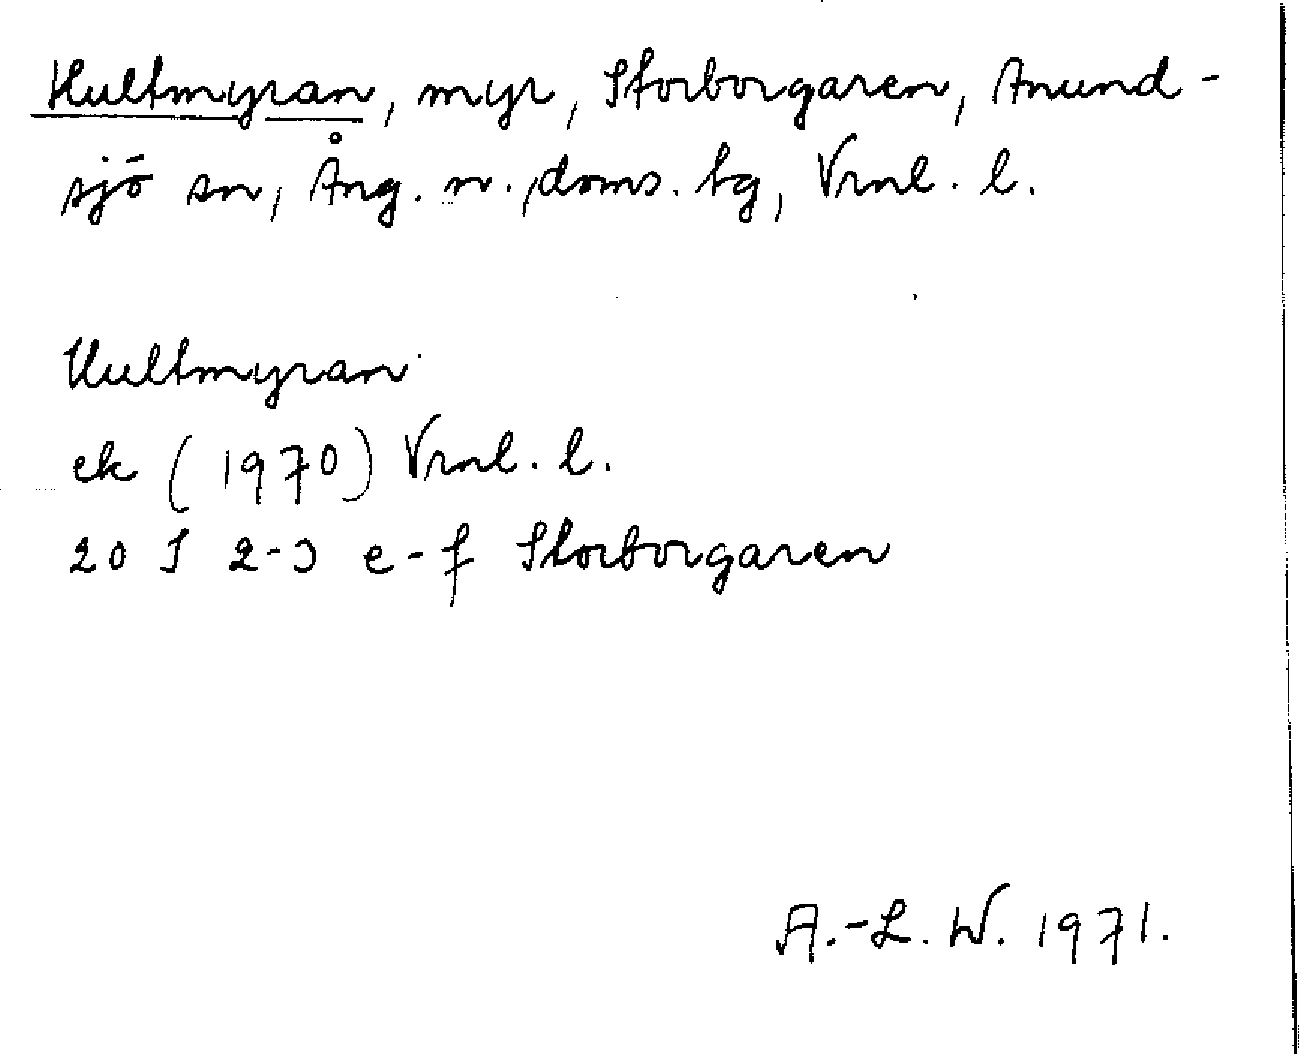 Hultmyran, myr, Storborgaren, Anund-
sjö sn, Ång. n. doms. tg, Vrnl. l.
Hultmyran
ek (1970) Vrnl. l.
20 J 2-3 e-f Storborgaren
A.-L. W. 1971.